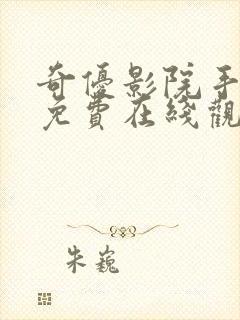 奇優影院手
免費在綫觀
朱巍